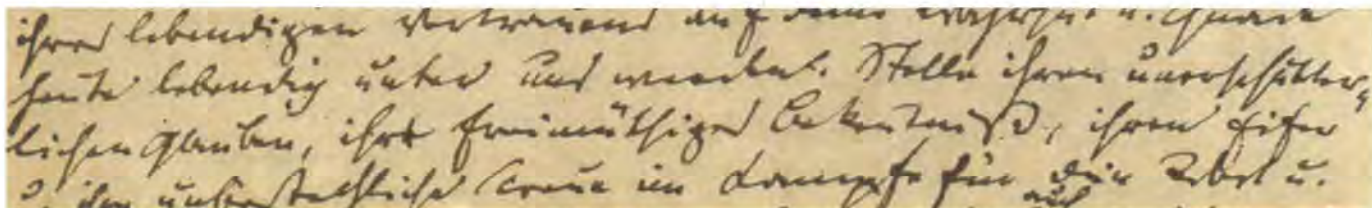 ihres lebendigen Vertrauens auf deine Wahrheit u. Gnade
heute lebendig unter uns werden. Stelle ihren unerschütter-
lichen Glauben, ihr freimüthiges Bekentniß, ihren Eifer
u. ihre unbestechliche Treue im Kampfe für dein u.
auch